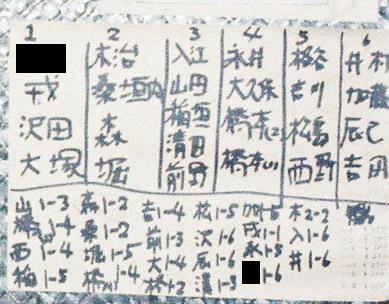 1 2 3 4 5 6
木治 入江 永井 板谷 井村
戎 桑垣内 山田 大久保 吉川 加藤
沢田 森 稲垣 橋本(2) 松島 辰巳
大塚 堀 清田 橋本(1) 西野 吉田
前野
山 1-3 森 1-2 吉 1-4 松 1-5 加 1-6 木 2-2
桑 1-2 前 1-3 沢 1-6 戎 1-1 入 1-6
西 1-4 堀 1-5 大 1-4 辰 1-6 永 1-5 井 1-6
稲 1-5 橋(1) 1-4 橋 2-2 清 1-3 1-6